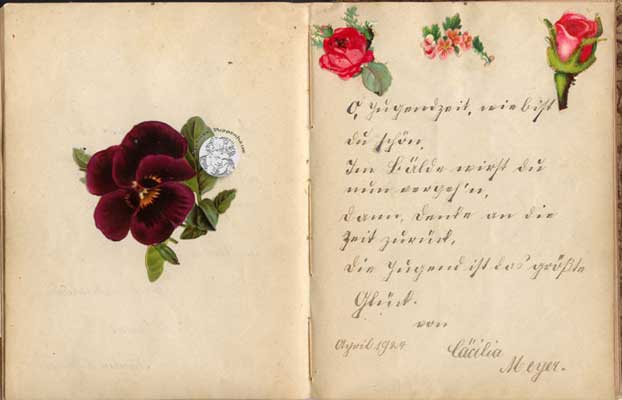 O, Jugendzeit, wie bist
du schön,
Im Bälde wirst du
nun vergeh'n,
Dann, denke an die
Zeit zurück,
Die Jugend ist das größte
Glück.
von
April 1924
Cäcilia
Meyer.